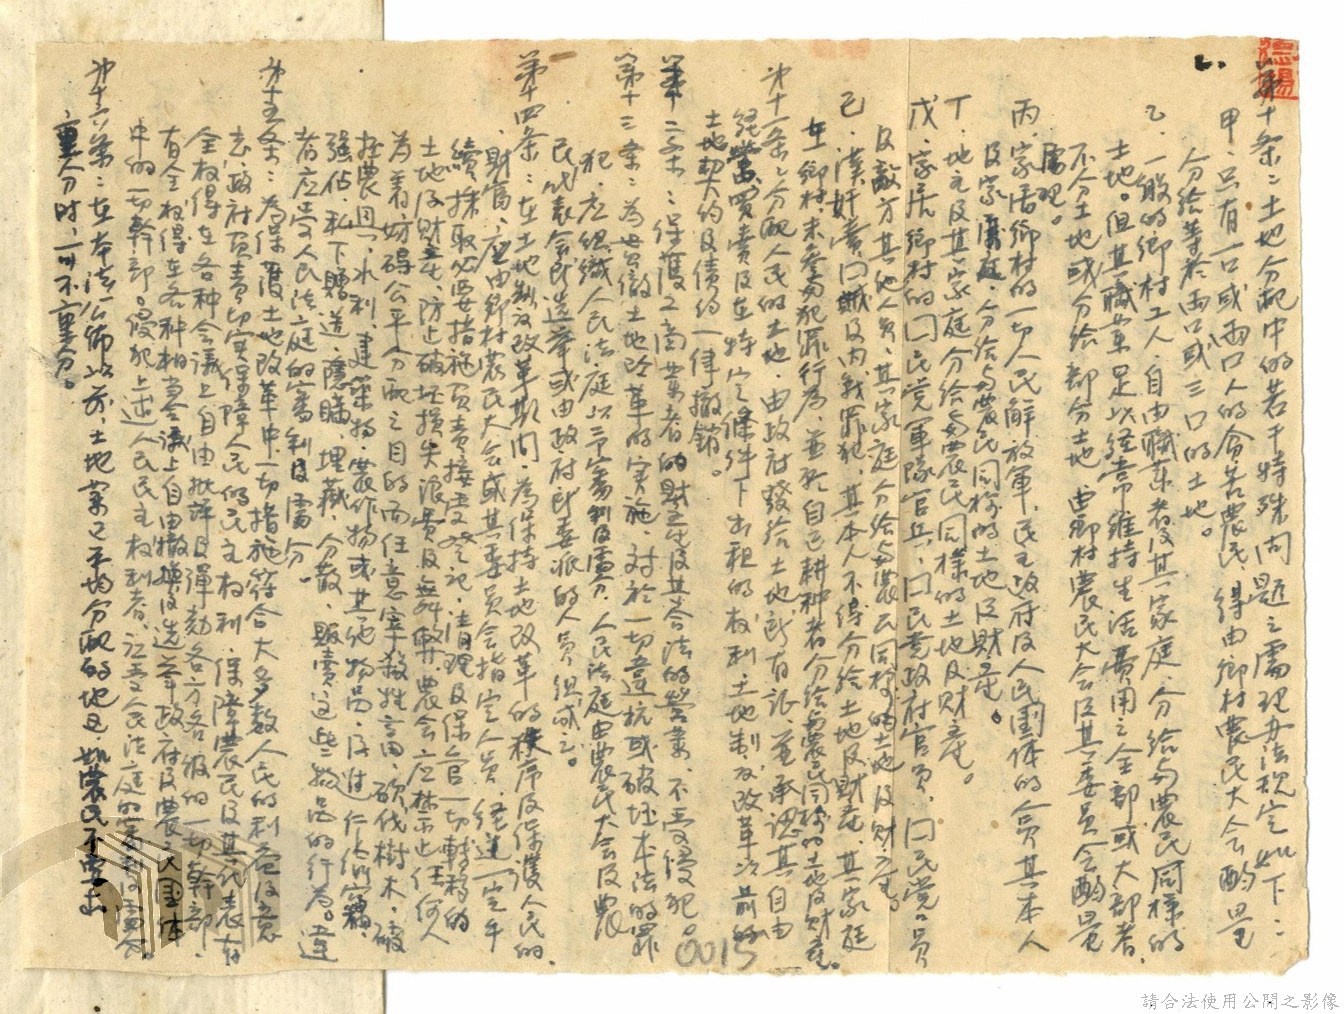 2.
第十条：土地分配中的若干特殊问题之處理办法規定如下：
甲．只有一口或兩口人的貧苦農民，得由鄉村農民大会酌量
分给等於兩口或三口的土地。
乙．一般的鄉村工人．自由職業者及其家庭．分給与農民同樣的
土地。但其職業足以经常維持生活費用之全部或大部者，
不分土地或分给部分土地，由鄉村農民大会及其委員会酌量
處理。
丙．家居鄉村的一切人民解放軍．民主政府及人民團体的人員其本人
及家庭．分给与農民同樣的土地及財產。
丁．地主及其家庭分给与農民同樣的土地及財產。
戊．家居鄉村的囗民党軍隊官兵．囗民党政府官員．囗民党党員
及敵方其他人員，其家庭分给与農民同樣的土地及財產。
己．漢奸賣囗賊及内戰罪犯．其本人不得分给土地及財產．其家庭
在鄉村未參与犯罪行為並願自己耕种者分给與農民同樣的土地及財產。
第十一条：分配人民的土地．由政府發给土地所有証．並承認其自由
经营，買賣及在特定條件下出租的权利．土地制度改革以前的
土地契約及债約一律撤銷。
第十二条：保護工商業者的財產及其合法的营業．不受侵犯。
第十三条：為貫徹土地改革的实施．对於一切違抗或破坏本法的罪
犯．应组織人民法庭以予審判及處分．人民法庭由農民大会及農
民代表会所选举或由政府所委派的人員组成之。
第十四条：在土地制度改革期间．為保持土地改革的秩序及保護人民的
財富．应由鄉村農民大会或其委員会指定人員．经过一定手
續．採取必要措施負責接受登记．清理及保管一切轉移的
土地及財產．防止破坏損失浪費及舞弊．農会应禁止任何人
为着妨碍公平分配之目的而任意宰殺牲畜．砍伐樹木．破
坏農具．水利．建築物．農作物或其他物品．及進行偷竊．
强佔．私下贈送．隱瞞．埋藏．分散．販賣这些物品的行為。違
者应受人民法庭的審判及處分。
第十五条：為保護土地改革中一切措施符合大多数人民的利益及意
志．政府負責切实保障人民的民主权利．保障農民及其代表有
全权得在各种会議上自由批評及彈劾各方各级的一切幹部．
有全权得在各种相当会議上自由撤換及选举政府及農会团体
中的一切幹部。侵犯上述人民民主权利者．应受人民法庭的審判及處分
第十六条：在本法公佈以前．土地業已平均分配的地区．如農民不要求
重分时．可不重分。
0015
請合法使用公開之影像